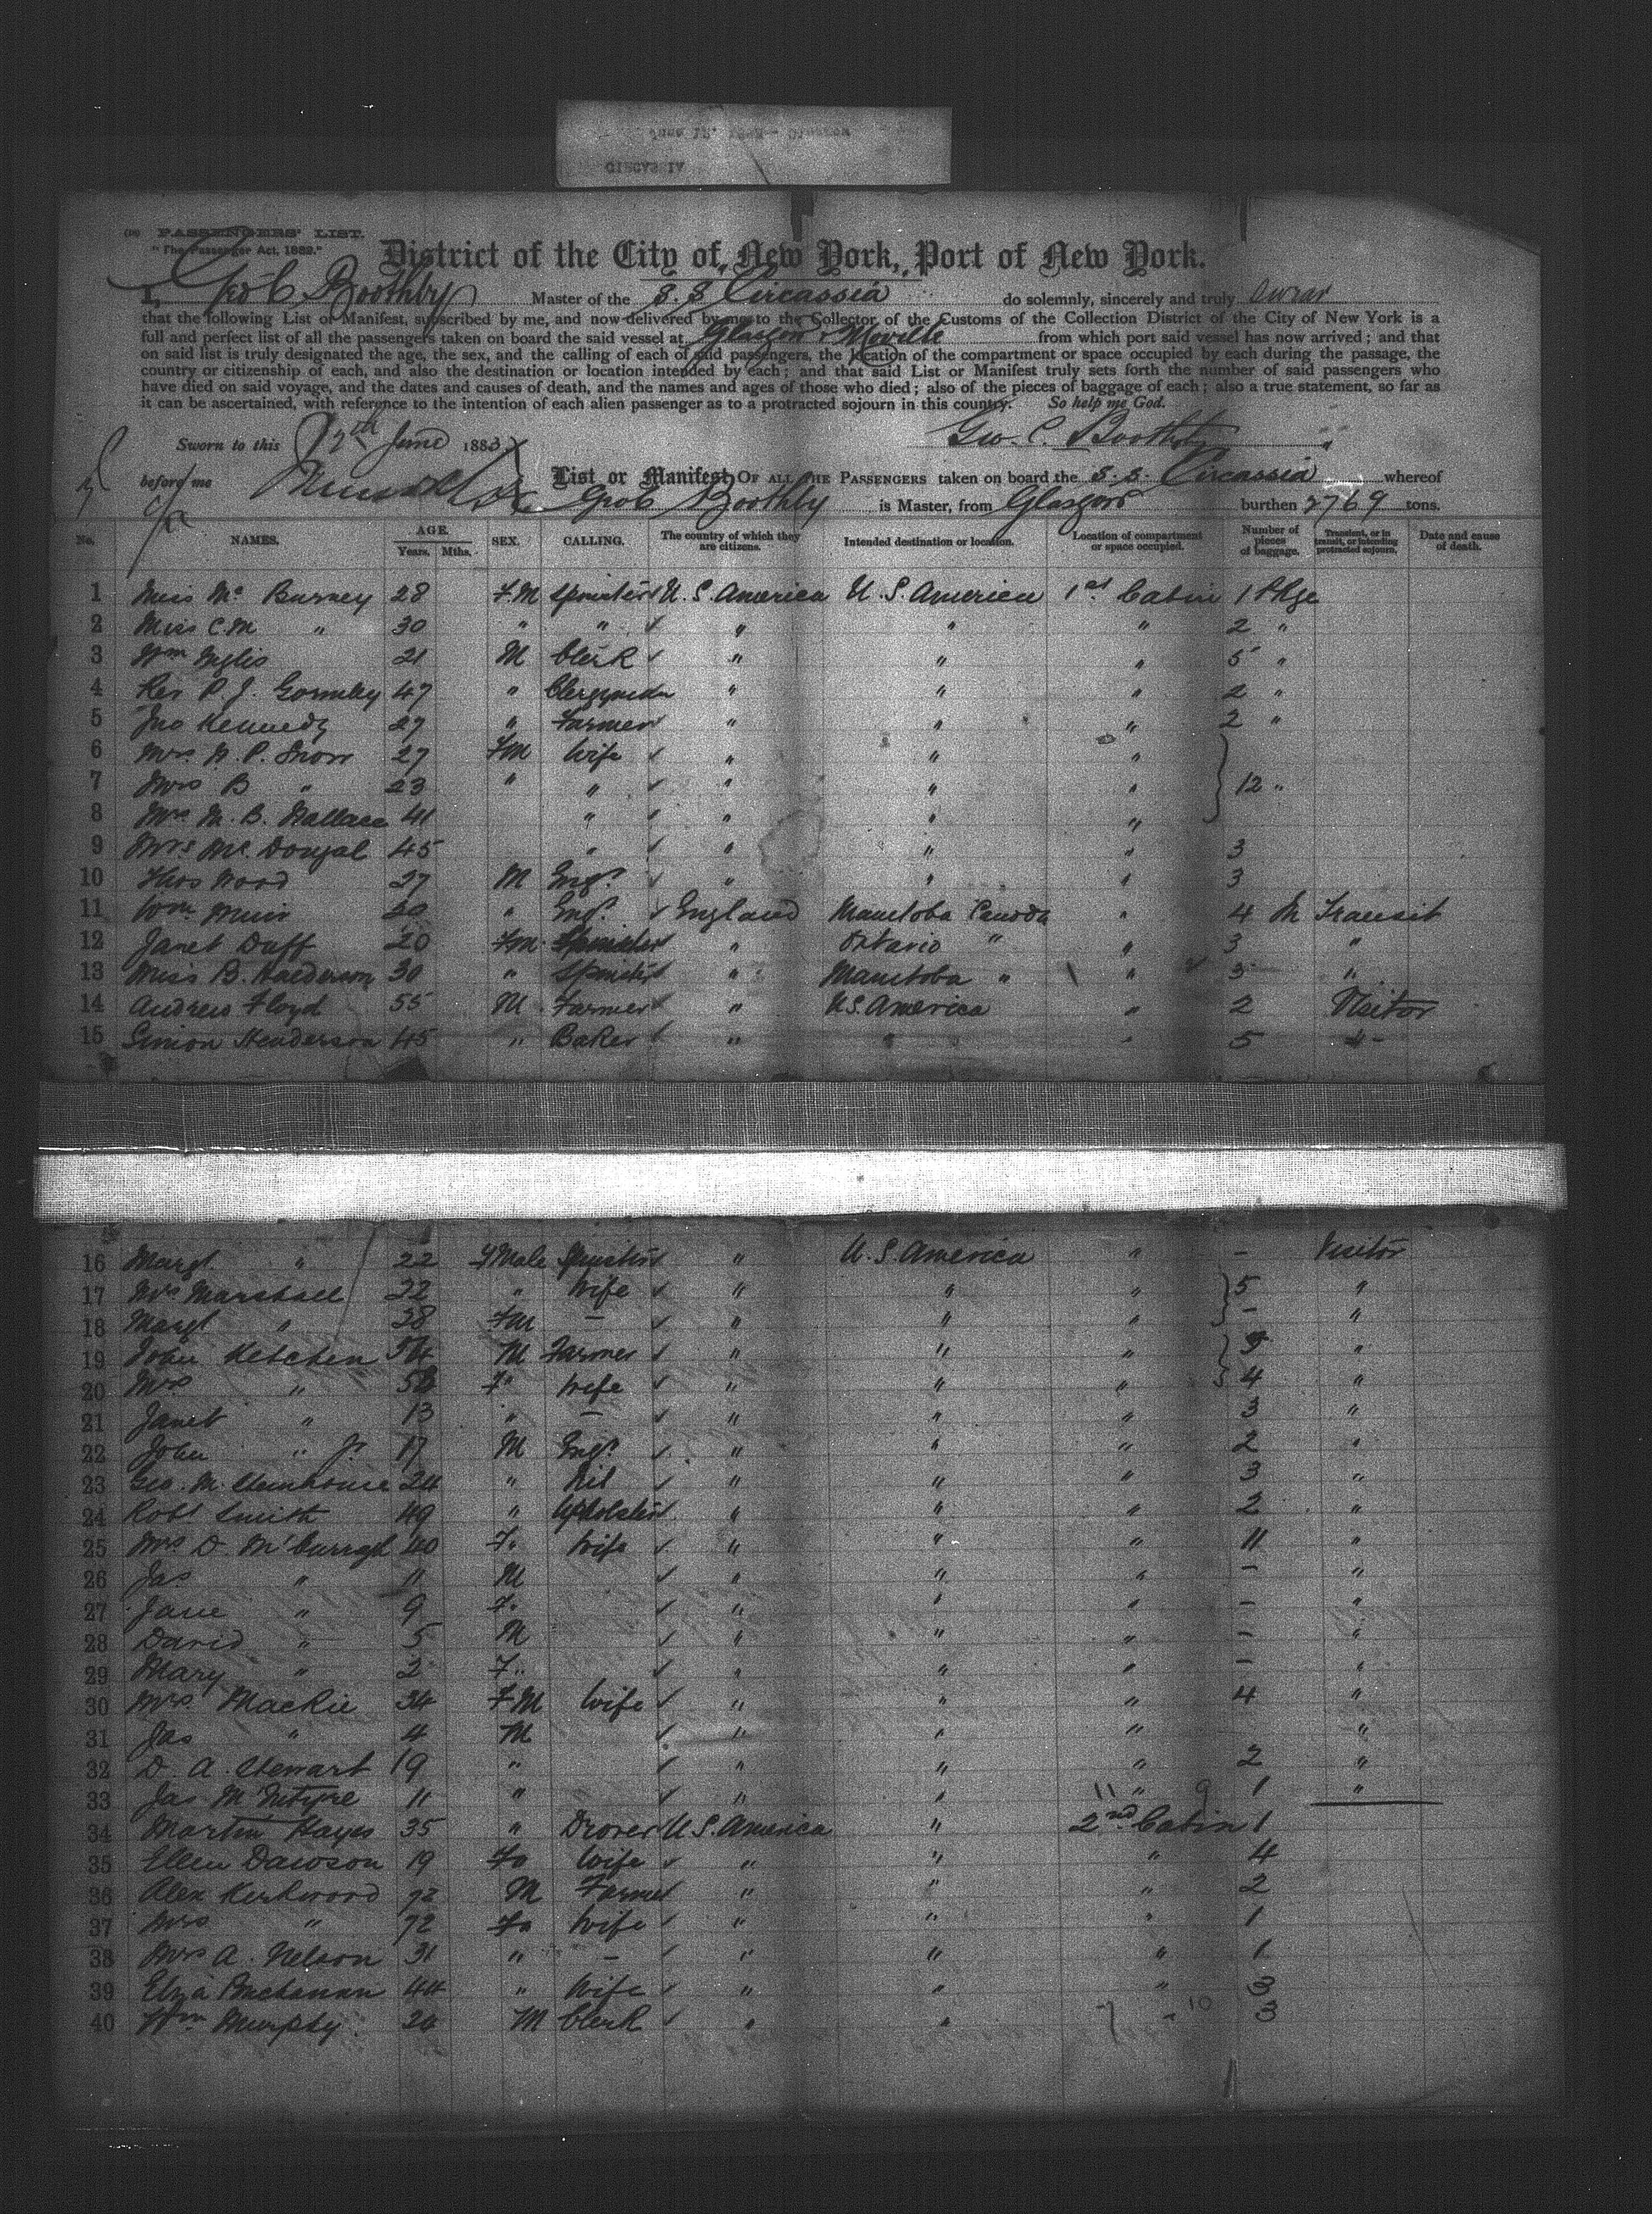 (18) PASSENGERS' LIST.
"The Passenger Act, 1882."
District of the City of New York, Port of New York.
I, Geo C Boothby Master of the S.S Circassia do solemnly, sincerely and truly swear
that the following List or Manifest, subscribed by me, and now delivered by me to the Collector of the Customs of the Collection District of the City of New York is a
full and perfect list of all the passengers taken on board the said vessel at Glasgow & Moville from which port said vessel has now arrived; and that
on said list is truly designated the age, the sex, and the calling of each of said passengers, the location of the compartment or space occupied by each during the passage, the
country or citizenship of each, and also the destination or location intended by each; and that said List or Manifest truly sets forth the number of said passengers who
have died on said voyage, and the dates and causes of death, and the names and ages of those who died; also of the pieces of baggage of each; also a true statement, so far as
it can be ascertained, with reference to the intention of each alien passenger as to a protracted sojourn in this country. So help me God.
Sworn to this 12th June 1883 Geo. C. Boothby
before me List or Manifest OF ALL THE PASSENGERS taken on board the S.S. Circassia whereof
Geo C Boothby is Master, from Glasgow burthen 2769 tons.
No. NAMES. AGE. Years. Mths. SEX. CALLING. The country of which they are citizens. Intended destination or location. Location of compartment or space occupied. Number of pieces of baggage. Transient, or in transit, or intending protracted sojourn. Date and cause of death.
1 Miss Mc Burney 28 F.M Spinster U.S. America U.S. America 1st Cabin 1 Pkge
2 Miss C.M " 30 " " " " " 2 "
3 Wm Inglis 21 M Clerk " " " 5 "
4 Rev P. J. Gormley 47 " Clergyman " " " 2 "
5 Jno Kennedy 27 " Farmer " " " 2 "
6 Mrs W. P. Snow 27 FM Wife " " "
7 Mrs B " 23 " " " " " 12 "
8 Mrs M. B. Wallace 41 " " " "
9 Mrs Mc Dougal 45 " " " " 3
10 Thos Wood 27 M Engr. " " " 3
11 Wm Muir 20 " Engr. England Manitoba Canada " 4 In Transit
12 Janet Duff 20 FM. Spinster " Ontario " " 3 "
13 Miss B. 30 " Spinster " Manitoba " " 3 "
14 Andrew Floyd 55 M Farmer " U.S. America " 2 Visitor
15 Simon Henderson 45 " Baker " " " 5 "
16 Margt " 22 F Male Spinster " U.S. America " - Visitor
17 Mrs Marshall 22 " Wife " " " 5 "
18 Margt " 28 FM - " " " - "
19 John Ketchen 54 M Farmer " " " "
20 Mrs " F" Wife " " " 4 "
21 Janet " 13 " - " " " 3 "
22 John " Jr 17 M Engr. " " " 2 "
23 Geo. M. Stenhouse 24 " Nil " " " 3 "
24 Robt Smith 49 " Upholster " " " 2 "
25 Mrs D. 40 F" Wife " " " 11 "
26 Jas " 11 M " " " - "
27 Jane " 9 F" " " " - "
28 David " 5 M " " " - "
29 Mary " 2 F" " " " - "
30 Mrs Mackie 34 FM Wife " " " 4 "
31 Jas " 4 M " " " "
32 D. A. Stewart 19 " " " " 2 "
33 Jas McIntyre 11 " " " 11 " 9 1 "
34 Martin Hayes 35 " Drover U.S. America " 2nd Cabin 1
35 Ellen Dawson 19 F" Wife " " " 4
36 Alex Kirkwood 72 M Farmer " " " 2
37 Mrs " 72 F" Wife " " " 1
38 Mrs A. Nelson 31 " - " " " 1
39 Eliza Buchanan 44 " Wife " " " 3
40 Wm Murphy 24 M Clerk " " 7 " 10 3